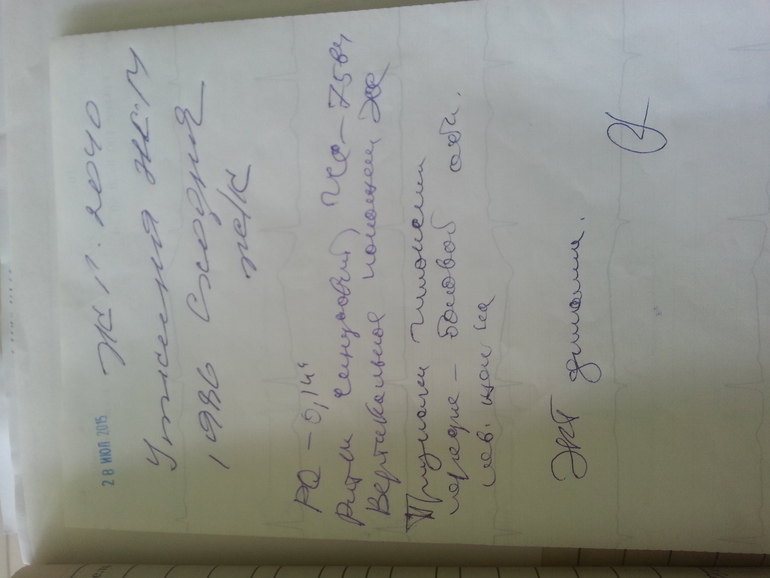 28 ИЮЛ 2015
1986 Сходня
ж/к
PQ - 0,14"
Ритм синусовый, ЧСС - 75 вч
Вертикальное положение ЭОС
Признаки гипоксии
передне - боковой обл.
лев. жел-ка
ЭКГ динамика.